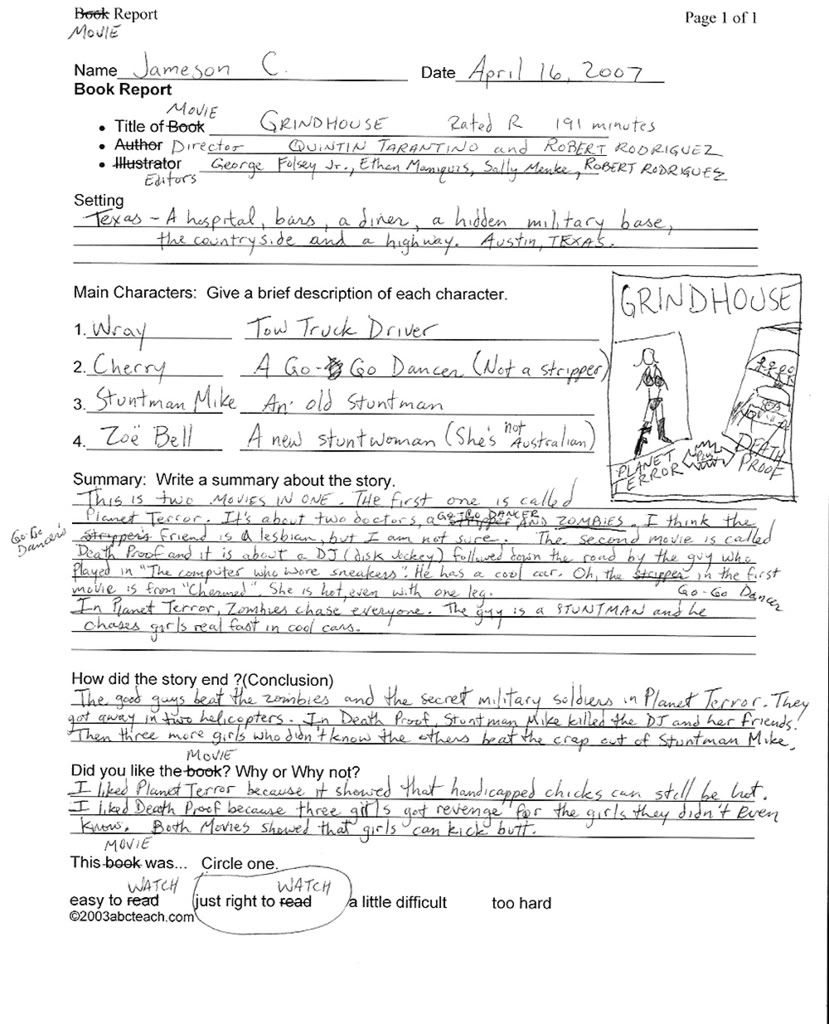 Book Report
MOVIE
Page 1 of 1
Name Jameson C. Date April 16, 2007
Book Report
MOVIE
• Title of Book GRINDHOUSE Rated R 191 minutes
• Author Director QUINTIN TARANTINO and ROBERT RODRIGUEZ
• Illustrator George Folsey Jr., Ethan Maniquis, Sally Menke, ROBERT RODRIGUEZ
Editors
Setting
Texas - A hospital, bars, a diner, a hidden military base,
the countryside and a highway. Austin, TEXAS.
Main Characters: Give a brief description of each character.
1. Wray Tow Truck Driver
2. Cherry A Go-Go Dancer (Not a stripper)
3. Stuntman Mike An old stuntman
not
4. Zoë Bell A new stuntwoman (She's Australian)
GRINDHOUSE
PLANET TERROR
PLUS
DEATH PROOF
Summary: Write a summary about the story.
This is two MOVIES IN ONE. THE first one is called
GO-GO DANCER
Planet Terror. It's about two doctors, a stripper AND ZOMBIES. I think the
Go-Go Dancer's
stripper's friend is a lesbian, but I am not sure. The second movie is called
Death Proof and it is about a DJ (disk Jockey) followed down the road by the guy who
played in "The computer who wore sneakers". He has a cool car. Oh, the stripper in the first
Go-Go Dancer
movie is from "Charmed". She is hot, even with one leg.
In Planet Terror, Zombies chase everyone. The guy is a STUNTMAN and he
chases girls real fast in cool cars.
How did the story end ?(Conclusion)
The good guys beat the zombies and the secret military soldiers in Planet Terror. They
got away in two helicopters. In Death Proof, Stuntman Mike killed the DJ and her friends.
Then three more girls who didn't know the others beat the crap out of Stuntman Mike.
MOVIE
Did you like the book? Why or Why not?
I liked Planet Terror because it showed that handicapped chicks can still be hot.
I liked Death Proof because three girls got revenge for the girls they didn't Even
know. Both Movies showed that girls can kick butt.
MOVIE
This book was... Circle one.
WATCH WATCH
easy to read just right to read a little difficult too hard
©2003abcteach.com